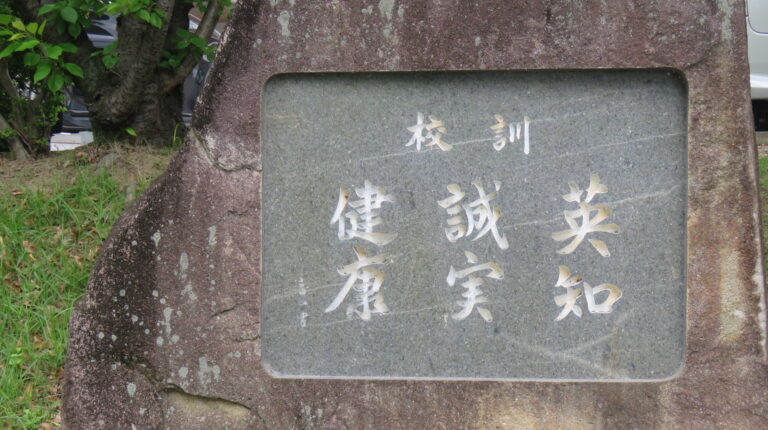 校訓
英知
誠実
健康